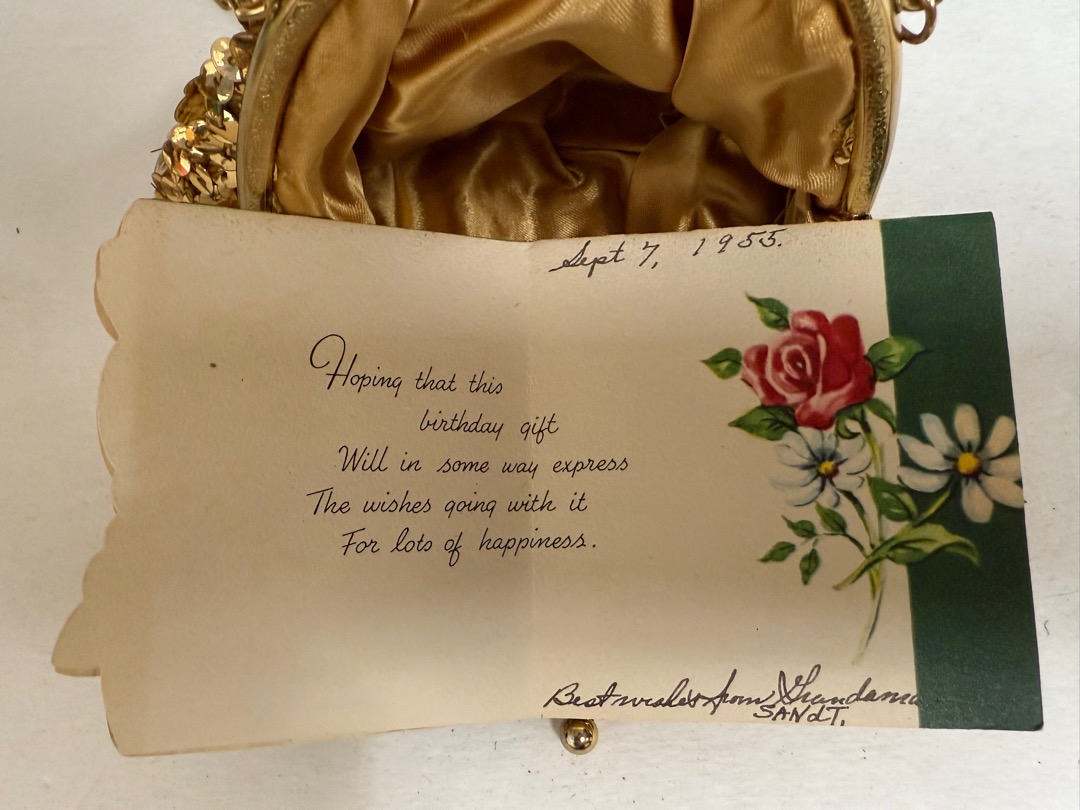 Sept 7, 1955.
Hoping that this
birthday gift
Will in some way express
The wishes going with it
For lots of happiness.
Best wishes from Grandama
SANdT.